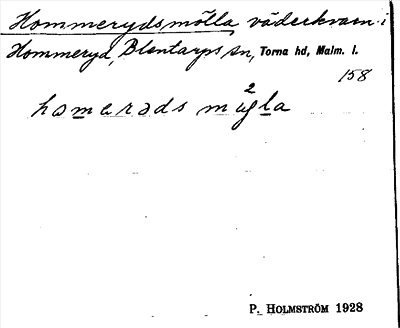 Hommerydsmölla, väderkvarn i
Hommeryd, Blentarps sn, Torna hd, Malm. l.
158
2
homerads mugla
P. HOLMSTRÖM 1928